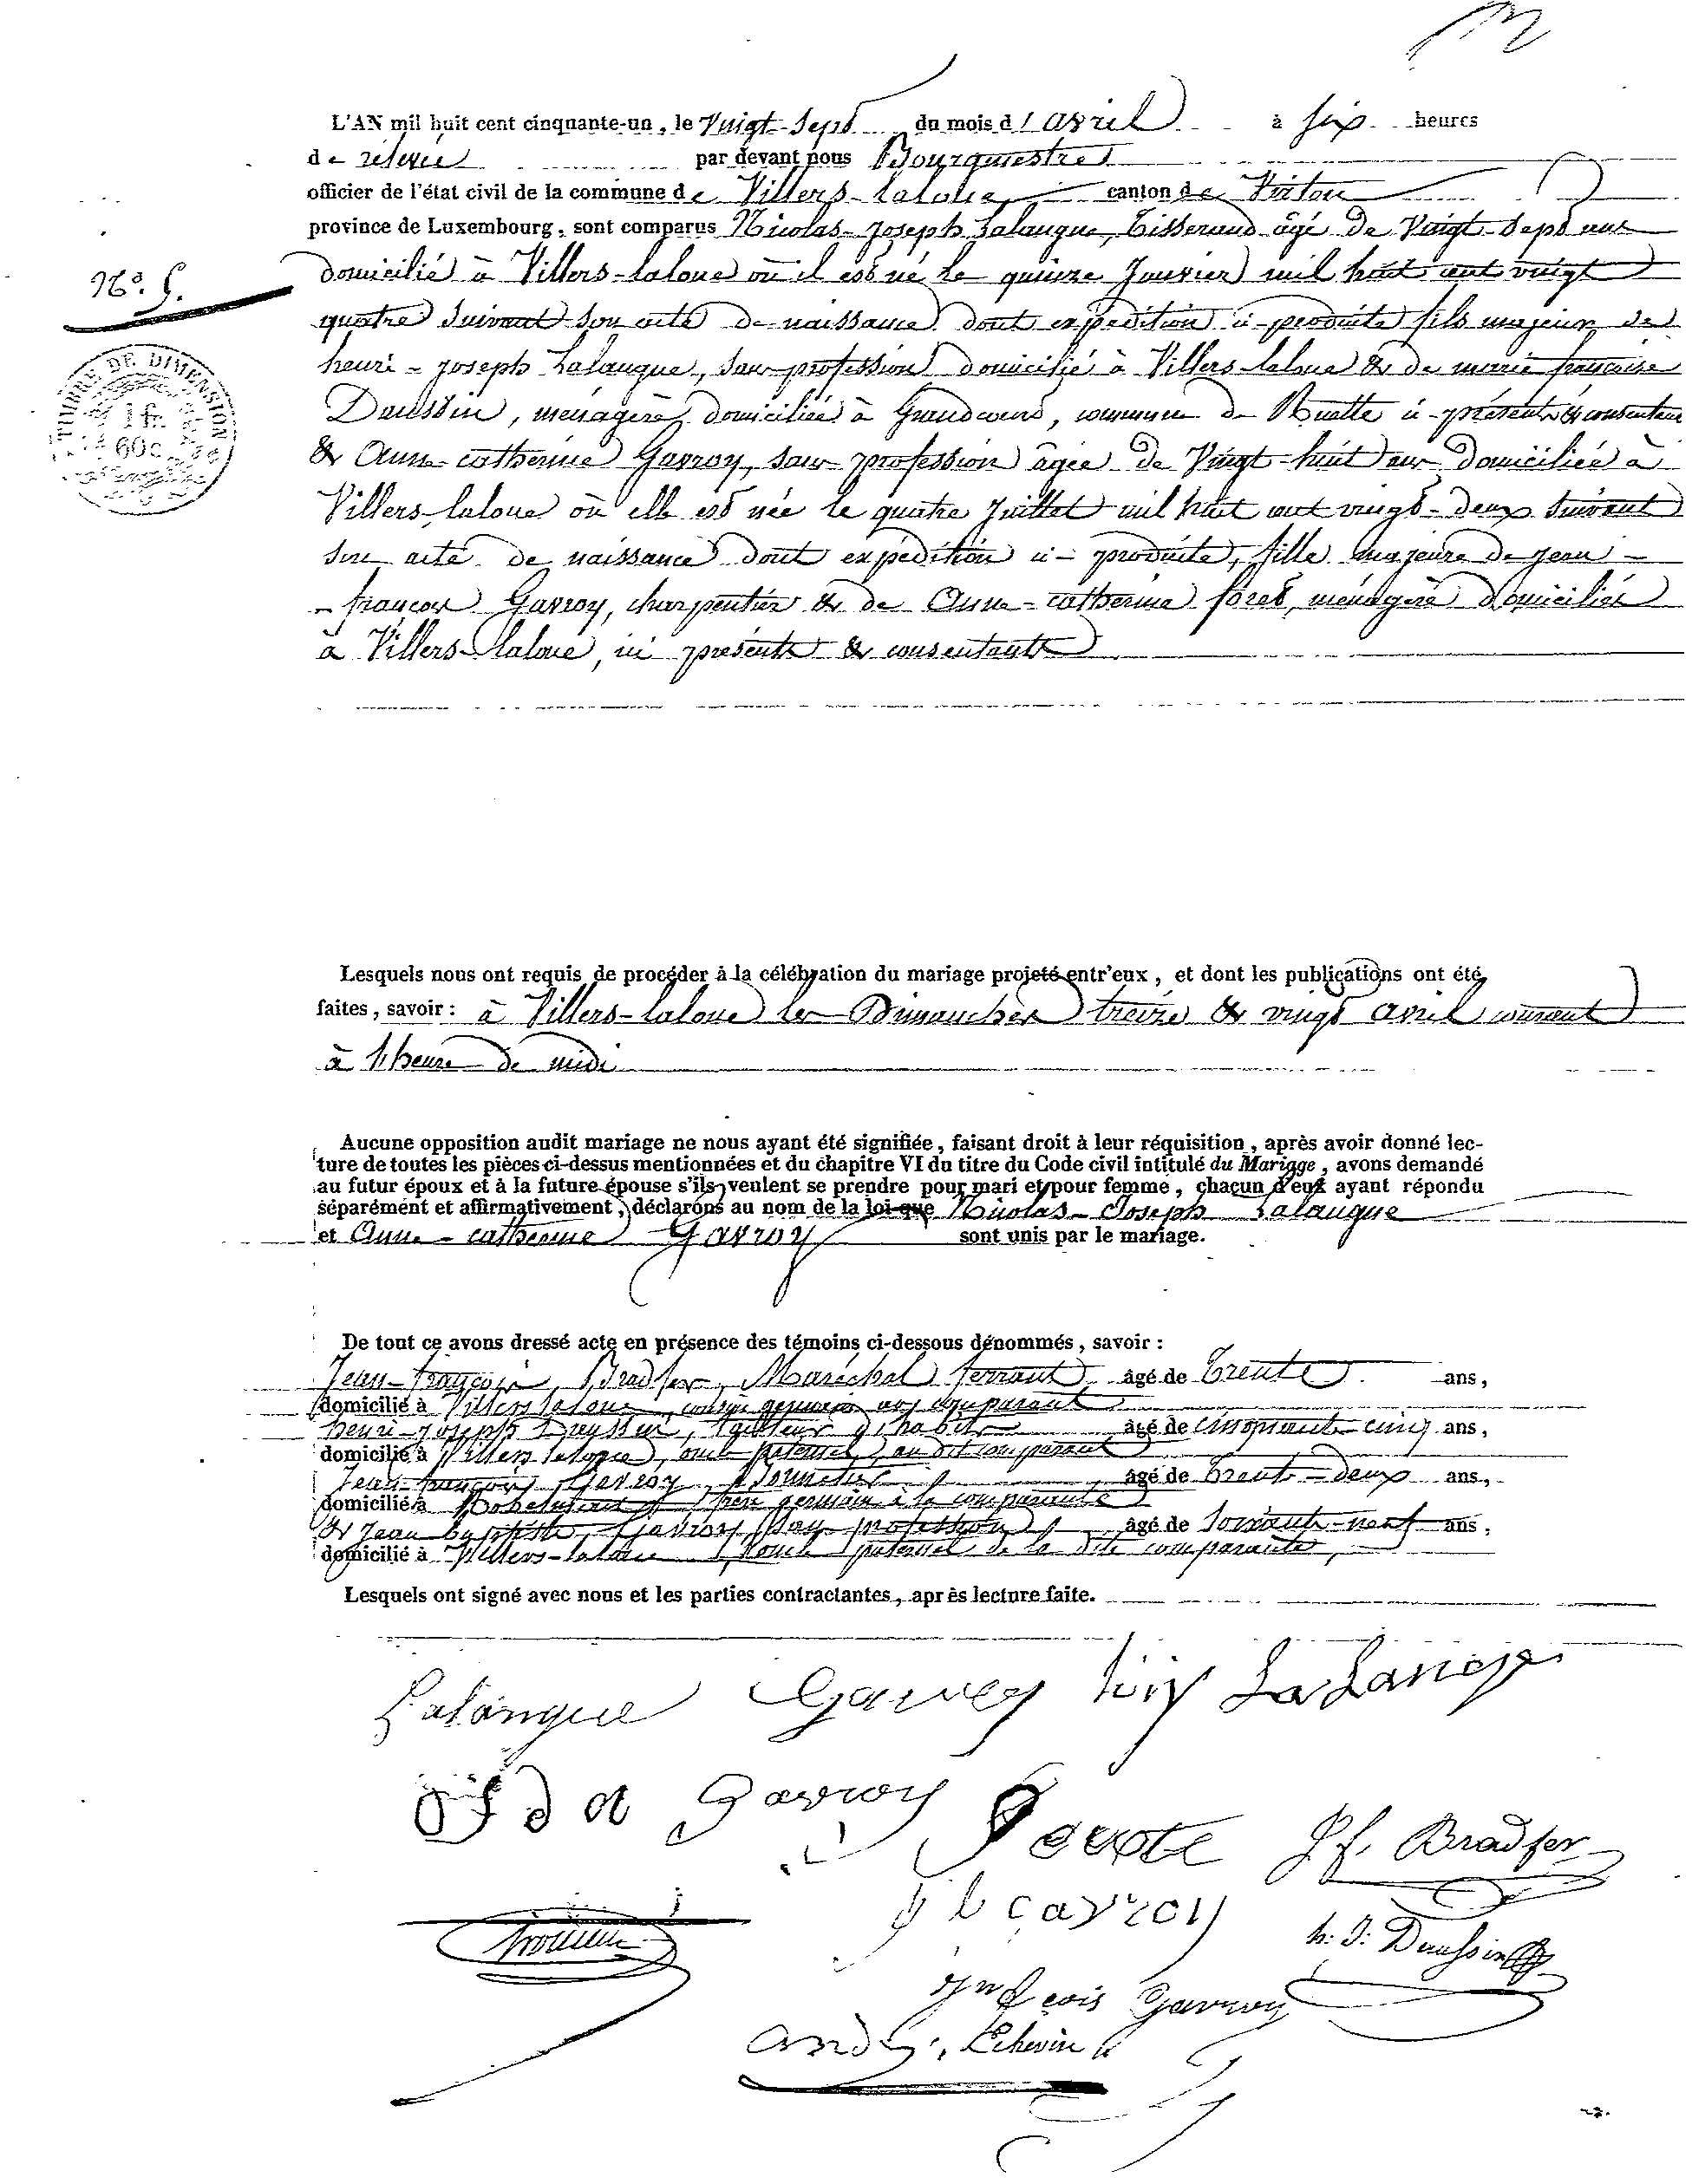 L'AN mil huit cent cinquante-un, le Vingt-Sept du mois d'avril à six heures
de relevée par devant nous Bourgmestre
officier de l'état civil de la commune de Villers-laloue canton de Virton
province de Luxembourg, sont comparus Nicolas-Joseph Lalangue, Tisserand âgé de Vingt-Sept ans
domicilié à Villers-laloue où il est né le quinze Janvier mil huit cent vingt
quatre suivant son acte de naissance dont expédition ci-produite fils majeur de
henri-joseph Lalangue, sans profession domicilié à Villers-laloue & de marie françoise
Daussin, ménagère domiciliée à Grandcourt, commune de Ruette ci-présents & consentans
& Anne-catherine Gavroy, sans profession âgée de Vingt-huit ans domiciliée à
Villers-laloue où elle est née le quatre Juillet mil huit cent vingt-deux suivant
son acte de naissance dont expédition ci-produite, fille majeure de jean-
-françois Gavroy, charpentier & de Anne-catherine foret, ménagère domiciliés
à Villers-laloue, ici présents & consentants
N.º 5.
TIMBRE DE DIMENSION
1 fr.
60 c.
Lesquels nous ont requis de procéder à la célébration du mariage projeté entr'eux, et dont les publications ont été
faites, savoir : à Villers-laloue les Dimanches treize & vingt avril courant
à l'heure de midi
Aucune opposition audit mariage ne nous ayant été signifiée, faisant droit à leur réquisition, après avoir donné lec-
ture de toutes les pièces ci-dessus mentionnées et du chapitre VI du titre du Code civil intitulé du Mariage, avons demandé
au futur époux et à la future épouse s'ils veulent se prendre pour mari et pour femme, chacun d'eux ayant répondu
séparément et affirmativement, déclarons au nom de la loi que Nicolas-Joseph Lalangue
et Anne-catherine Gavroy sont unis par le mariage.
De tout ce avons dressé acte en présence des témoins ci-dessous dénommés, savoir :
Jean-françois Bradfer, Maréchal ferrant, âgé de Trente ans,
domicilié à Villers laloue, cousin germain au comparant
henri-joseph Daussin, tailleur d'habits âgé de cinquante-cinq ans,
domicilié à Villers laloue, oncle paternel au dit comparant
Jean-françois Gavroy, âgé de Trente-deux ans,
domicilié à frère germain à la comparante
& Jean baptiste Gavroy, sans profession, âgé de soixante-neuf ans,
domicilié à Villers-laloue, oncle paternel de la dite comparante,
Lesquels ont signé avec nous et les parties contractantes, après lecture faite.
Lalangue Gavroy LaLangue
Gavroy
J f. Bradfer
gavroy
h: J: Daussin
Gavroy
Echevin